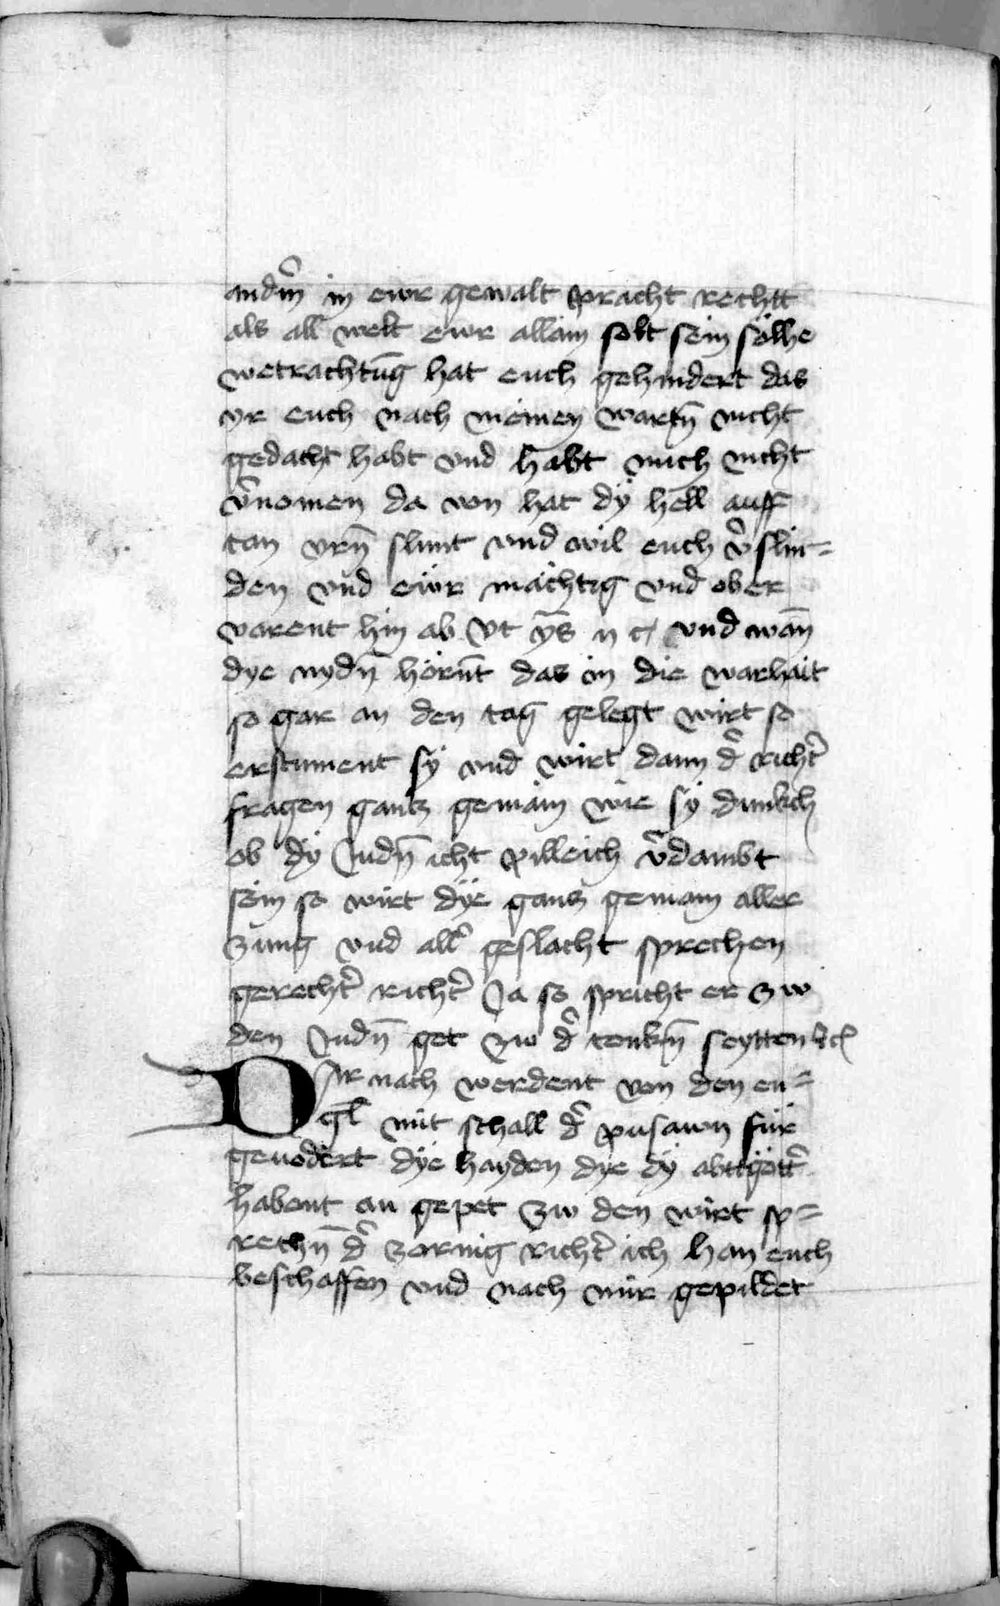 andm̄ in ewr gewalt pracht rechtt
als all welt ewr allain solt sein sölhe
wetrachtūg hat euch gehindert das
yr euch nach meinen wartn̄ nicht
gedacht habt vnd habt mich nicht
v̄nomen da von hat dÿ hell auff
tan yrn̄ slunt vnd wil euch v̄slin=
den vnd ewr mächtig vnd ober
varent hin ab vt ys n c vnd wan̄
dye nydn̄ hörnt das in die warhait
so gar an den tag gelegt wirt so
erstument sÿ vnd wirt dann d̄ richt̄
fragen gantz gemain wie sÿ dunkch
ob dÿ Judn̄ icht pilleich v̄dambt
sein so wirt dÿe gans gemain aller
zung vnd all̄ geslacht sprechen
gerecht̄ richt̄ Ja so spricht er zw
den Judn̄ get zw d̄ tenkn̄ seytten ꝛc
DAr nach werdent von den en=
gl̄ mit schall d̄ pusawn für
geuodert dÿe hayden dye dÿ abttgött̄
habent an gepet zw den wirt sp=
rechn̄ d̄ zornig richt̄ ich han euch
beschaffen vnd nach mir gepildet